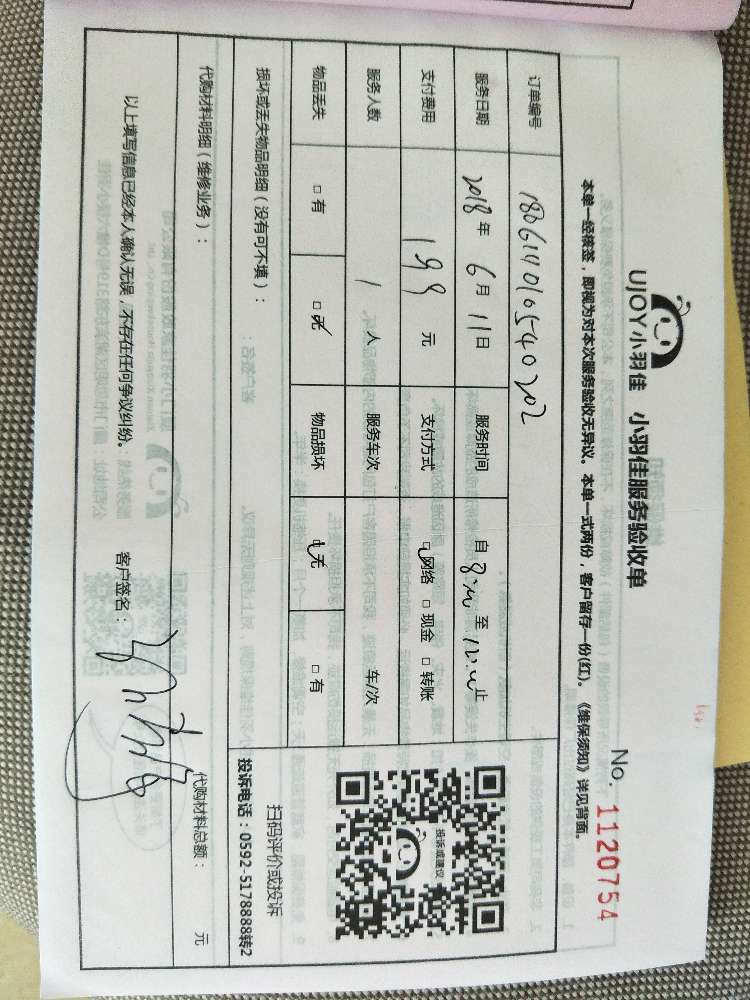 UJOY小羽佳 小羽佳服务验收单
No. 1120754
本单一经核签,即视为对本次服务验收无异议。本单一式两份,客户留存一份(红)。《维保须知》详见背面。
订单编号 180611010540202
服务日期 2018年6月11日 服务时间 自8:00至12:00止
支付费用 199元 支付方式 □网络 □现金 □转账
服务人数 1人 服务车次 车/次
物品丢失 □有 □无 物品损坏 □无 □有
损坏或丢失物品明细(没有可不填):
代购材料明细(维修业务):
代购材料总额: 元
投诉或建议
扫码评价或投诉
投诉电话:0592-5178888转2
以上填写信息已经本人确认无误,不存在任何争议纠纷。
客户签名: